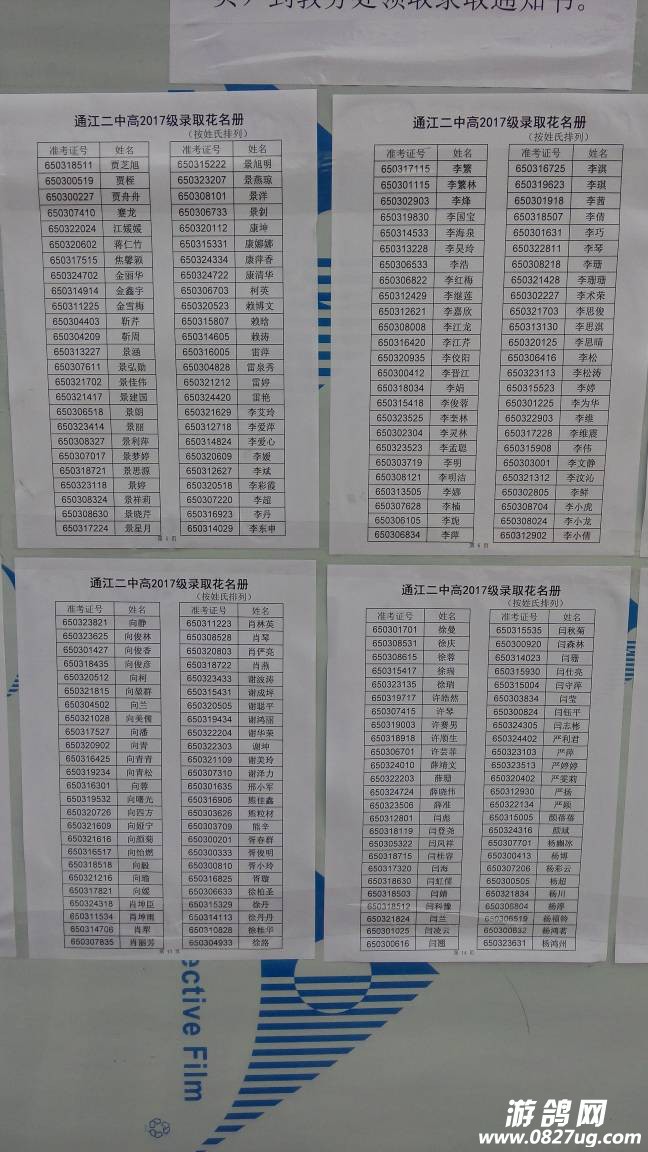 到教务处领取录取通知书。
通江二中高2017级录取花名册
(按姓氏排列)
准考证号 姓名 准考证号 姓名
650318511 贾芝旭 650315222 景旭明
650300519 贾桎 650323207 景燕琼
650300227 贾舟舟 650308101 景洋
650307410 蹇龙 650306733 景钊
650322024 江媛媛 650320112 康坤
650320602 蒋仁竹 650315331 康娜娜
650317515 焦馨颖 650324334 康萍香
650324702 金丽华 650324722 康清华
650314914 金鑫宇 650306703 柯英
650311225 金雪梅 650320523 赖博文
650304403 靳芹 650315807 赖晗
650304209 靳周 650314605 赖涛
650313227 景涵 650316005 雷萍
650307611 景弘勋 650304828 雷泉秀
650321702 景佳伟 650321212 雷婷
650321417 景建国 650324420 雷艳
650306518 景朗 650321629 李艾玲
650323414 景丽 650312718 李爱萍
650308327 景利萍 650314824 李爱心
650307017 景梦婷 650320609 李媛
650318721 景思源 650312627 李斌
650323118 景婷 650320518 李彩霞
650308324 景祥莉 650307220 李超
650308630 景晓芹 650316923 李丹
650317224 景星月 650314029 李东申
通江二中高2017级录取花名册
(按姓氏排列)
准考证号 姓名 准考证号 姓名
650317115 李繁 650316725 李淇
650301115 李繁林 650319623 李琪
650302903 李烽 650301918 李茜
650319830 李国宝 650318507 李倩
650314533 李海泉 650301631 李巧
650313228 李昊玲 650322811 李琴
650306533 李浩 650308218 李珊
650306822 李红梅 650321428 李珊珊
650312429 李继莲 650302227 李术荣
650312621 李嘉欣 650321703 李思俊
650308008 李江龙 650313130 李思淇
650316420 李江芹 650320125 李思晴
650320935 李佼阳 650306416 李松
650300412 李晋江 650323113 李松涛
650318034 李娟 650315523 李婷
650315418 李俊蓉 650301225 李为华
650323525 李奎林 650322903 李维
650302304 李灵林 650317228 李维震
650323523 李孟聪 650315908 李伟
650303719 李明 650303001 李文静
650308121 李明洁 650321312 李汶汕
650313505 李娜 650302805 李鲜
650307628 李楠 650308704 李小虎
650306105 李旎 650308024 李小龙
650306834 李萍 650312902 李小倩
通江二中高2017级录取花名册
(按姓氏排列)
准考证号 姓名 准考证号 姓名
650323821 向静 650311223 肖林英
650323625 向俊林 650308528 肖琴
650301427 向俊香 650320803 肖俨亮
650318435 向俊彦 650318722 肖燕
650320512 向柯 650323433 谢波涛
650321815 向最群 650315431 谢成坪
650304502 向兰 650320505 谢聪平
650321028 向美儒 650319434 谢鸿丽
650317527 向潘 650322204 谢华荣
650320902 向青 650322303 谢坤
650316425 向青青 650321109 谢美玲
650319234 向青松 650307310 谢泽力
650316301 向蓉 650301635 邢小军
650319532 向曙光 650316906 熊佳鑫
650320726 向四方 650303626 熊粒材
650321609 向姮宁 650303709 熊辛
650321616 向颜菊 650300201 胥春群
650316517 向怡燃 650300333 胥俊明
650318518 向毅 650300810 胥小玲
650321216 向瑜 650316825 胥璇
650317821 向媛 650306633 徐柏圣
650324318 肖坤臣 650315329 徐丹
650311534 肖坤雨 650314113 徐丹丹
650314706 肖犁 650310828 徐桂华
650307835 肖丽芳 650304933 徐路
通江二中高2017级录取花名册
(按姓氏排列)
准考证号 姓名 准考证号 姓名
650301701 徐曼 650315535 闫秋菊
650308531 徐庆 650300920 闫森林
650308615 徐蓉 650314023 闫珊
650315417 徐瑞 650315930 闫仕亮
650323135 徐瑞 650315004 闫守萍
650319717 许皓然 650303834 闫莹
650307415 许琴 650300824 闫钰平
650319003 许赛男 650324305 闫志彬
650318918 许顺生 650324402 严利君
650306701 许芸菲 650323103 严萍
650324010 薛靖文 650323513 严婷婷
650322203 薛珊 650320402 严雯莉
650324724 薛晓伟 650312930 严杨
650323506 薛淮 650322134 严颐
650312801 闫彪 650315005 颜蓓蓓
650318119 闫登尧 650324316 颜斌
650305322 闫风祥 650307701 杨幽冰
650318715 闫桂容 650300413 杨博
650317320 闫海 650307206 杨彩云
650318630 闫虹儒 650300505 杨超
650318503 闫婧 650321834 杨川
650318512 闫科豫 650306804 杨渟
650321824 闫兰 650306519 杨福铃
650301025 闫凌云 650300832 杨鸿茗
650300616 闫翘 650323631 杨鸿州
ective Film
游鸽网
www.0827ug.com